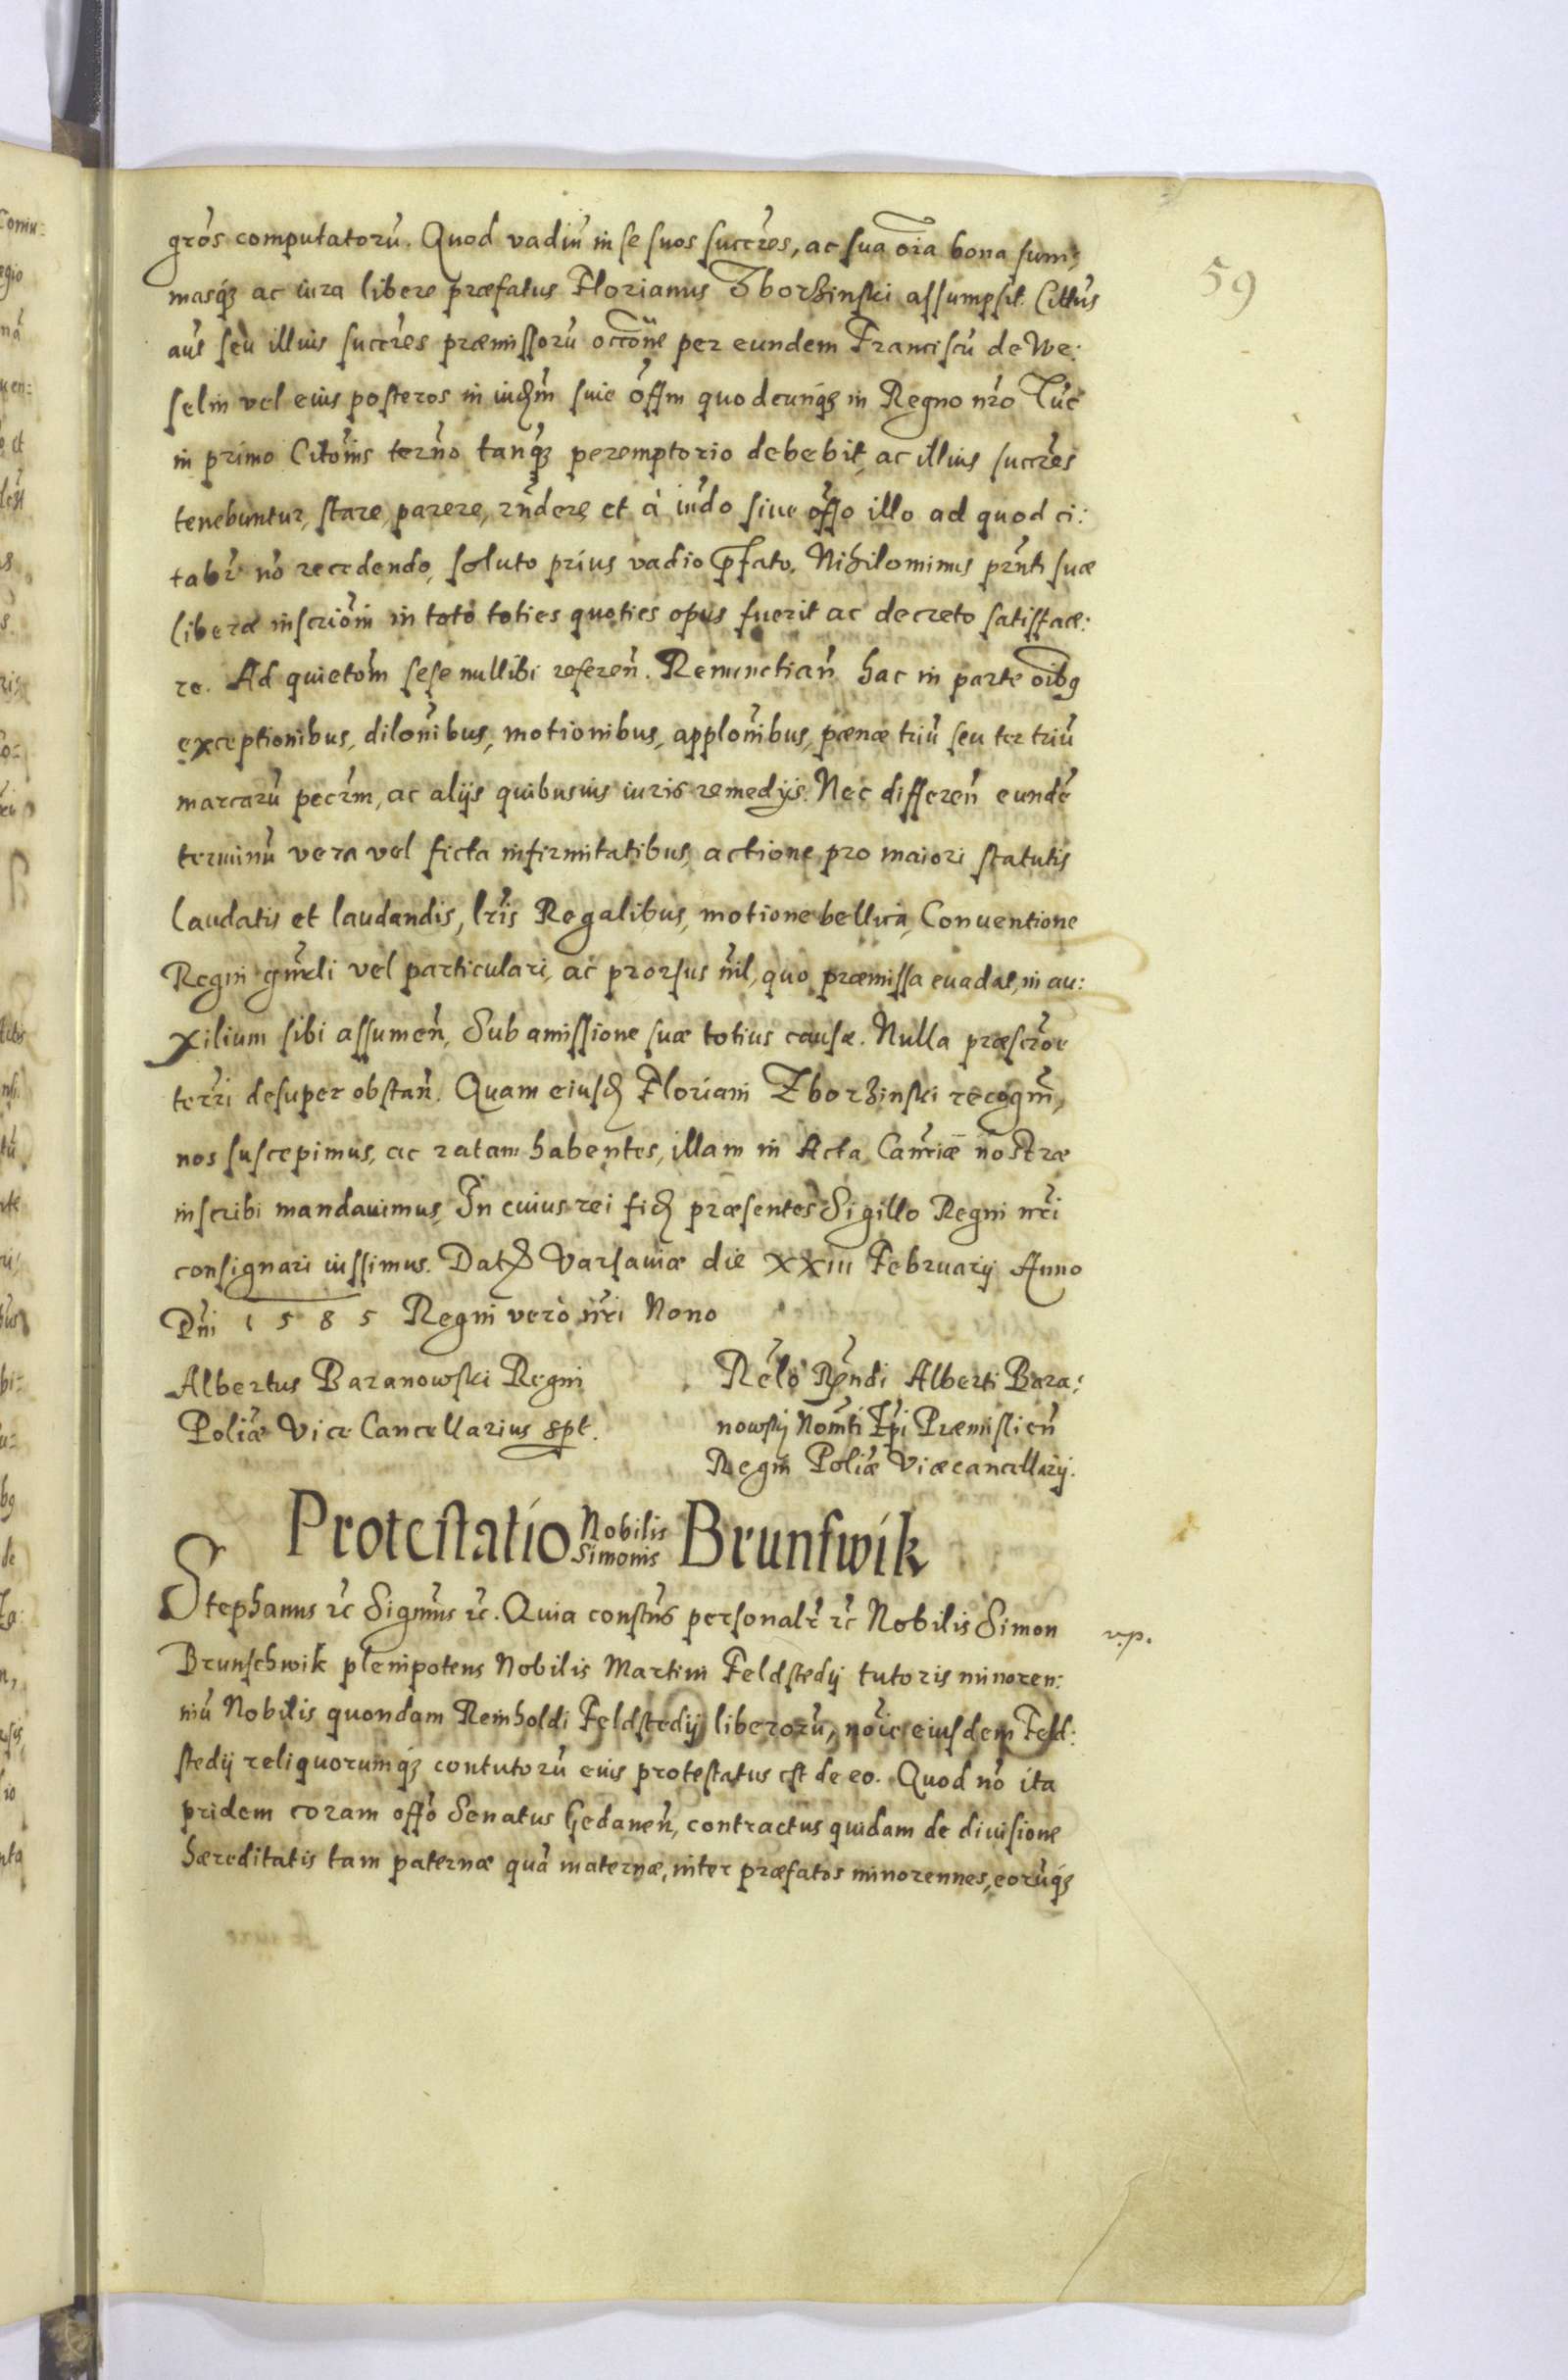 59
grõs computatorũ. Quod vadiũ in se suos succres̃, ac sua oĩa bona sum:
masq́ꝫ ac iura libere præfatus Florianus Zborzinski assumpsit. Cittũs
aut̃ seu illius succres̃ præmissorũ occõne per eundem Franciscũ de We:
selin vel eius posteros in iudm̃ siue off̃m quodcunq́ꝫ in Regno nrõ
in primo Citõnis term̃no tanq̃ꝫ peremptorio debebit, ac illius succres̃
tenebuntur, stare, parere, rñdere, et à iud̃o siue off̃o illo ad quod ci:
tabr̃ nõ recedendo, soluto prius vadio p̃fato. Nihilominus prñti suæ
liberæ inscriõni in toto toties quoties opus fuerit ac decreto satisface:
re. Ad quietom̃ sese nullibi referen̄. Renunctian̄ hac in parte oĩbꝯ
exceptionibus, dilõnibus, motionibus, applõnibus, pænæ triũ seu ter triũ
marcarũ pecr̃m, ac alijs quibusuis iuris remedijs. Nec differen̄ eundẽ
terminũ vera vel ficta infirmitatibus, actione pro maiori statutis
laudatis et laudandis, lr̃is Regalibus, motione bellica, Conuentione
Regni gñrali vel particulari, ac prorsus nĩl, quo præmissa euadat, in au:
xilium sibi assumen̄, Sub amissione suæ totius causæ. Nulla præscrõe
terr̃i desuper obstan̄. Quam eiusd̃ Floriani Zborzinski recogñm,
nos suscepimus, ac ratam habentes, illam in Acta Cancr̃iæ nostræ
inscribi mandauimus, In cuius rei fid̃ præsentes Sigillo Regni nr̃i
consignari iussimus. Dat̃ Varsauiæ die XXIII Februarij Anno
Dñi 1585 Regni verò nr̃i Nono
Albertus Baranowski Regni
Polĩæ Vice Cancellarius sspt.
Relõ Rẽndi Alberti Bara:
nowskj Nom̃ti Ep̃i Præmislien̄
Regni Polĩæ Vicecancellarij.
Protestatio Nobilis Simonis Brunswik
Stephanus ꝛc̃ Signm̃us ꝛc̃. Quia constñs personalr̃ ꝛc̃ Nobilis Simon
v.p.
Brunschwik plenipotens Nobilis Martini Feldstedij tutoris minoren:
niũ Nobilis quondam Reinholdi Feldstedij liberorũ, noĩe eiusdem Feld:
stedij reliquorumq́ꝫ contutorũ eius protestatus est de eo. Quod nõ ita
pridem coram off̃o Senatus Gedanen̄, contractus quidam de diuisione
hæreditatis tam paternæ quã maternæ, inter præfatos minorennes, eorũq́ꝫ